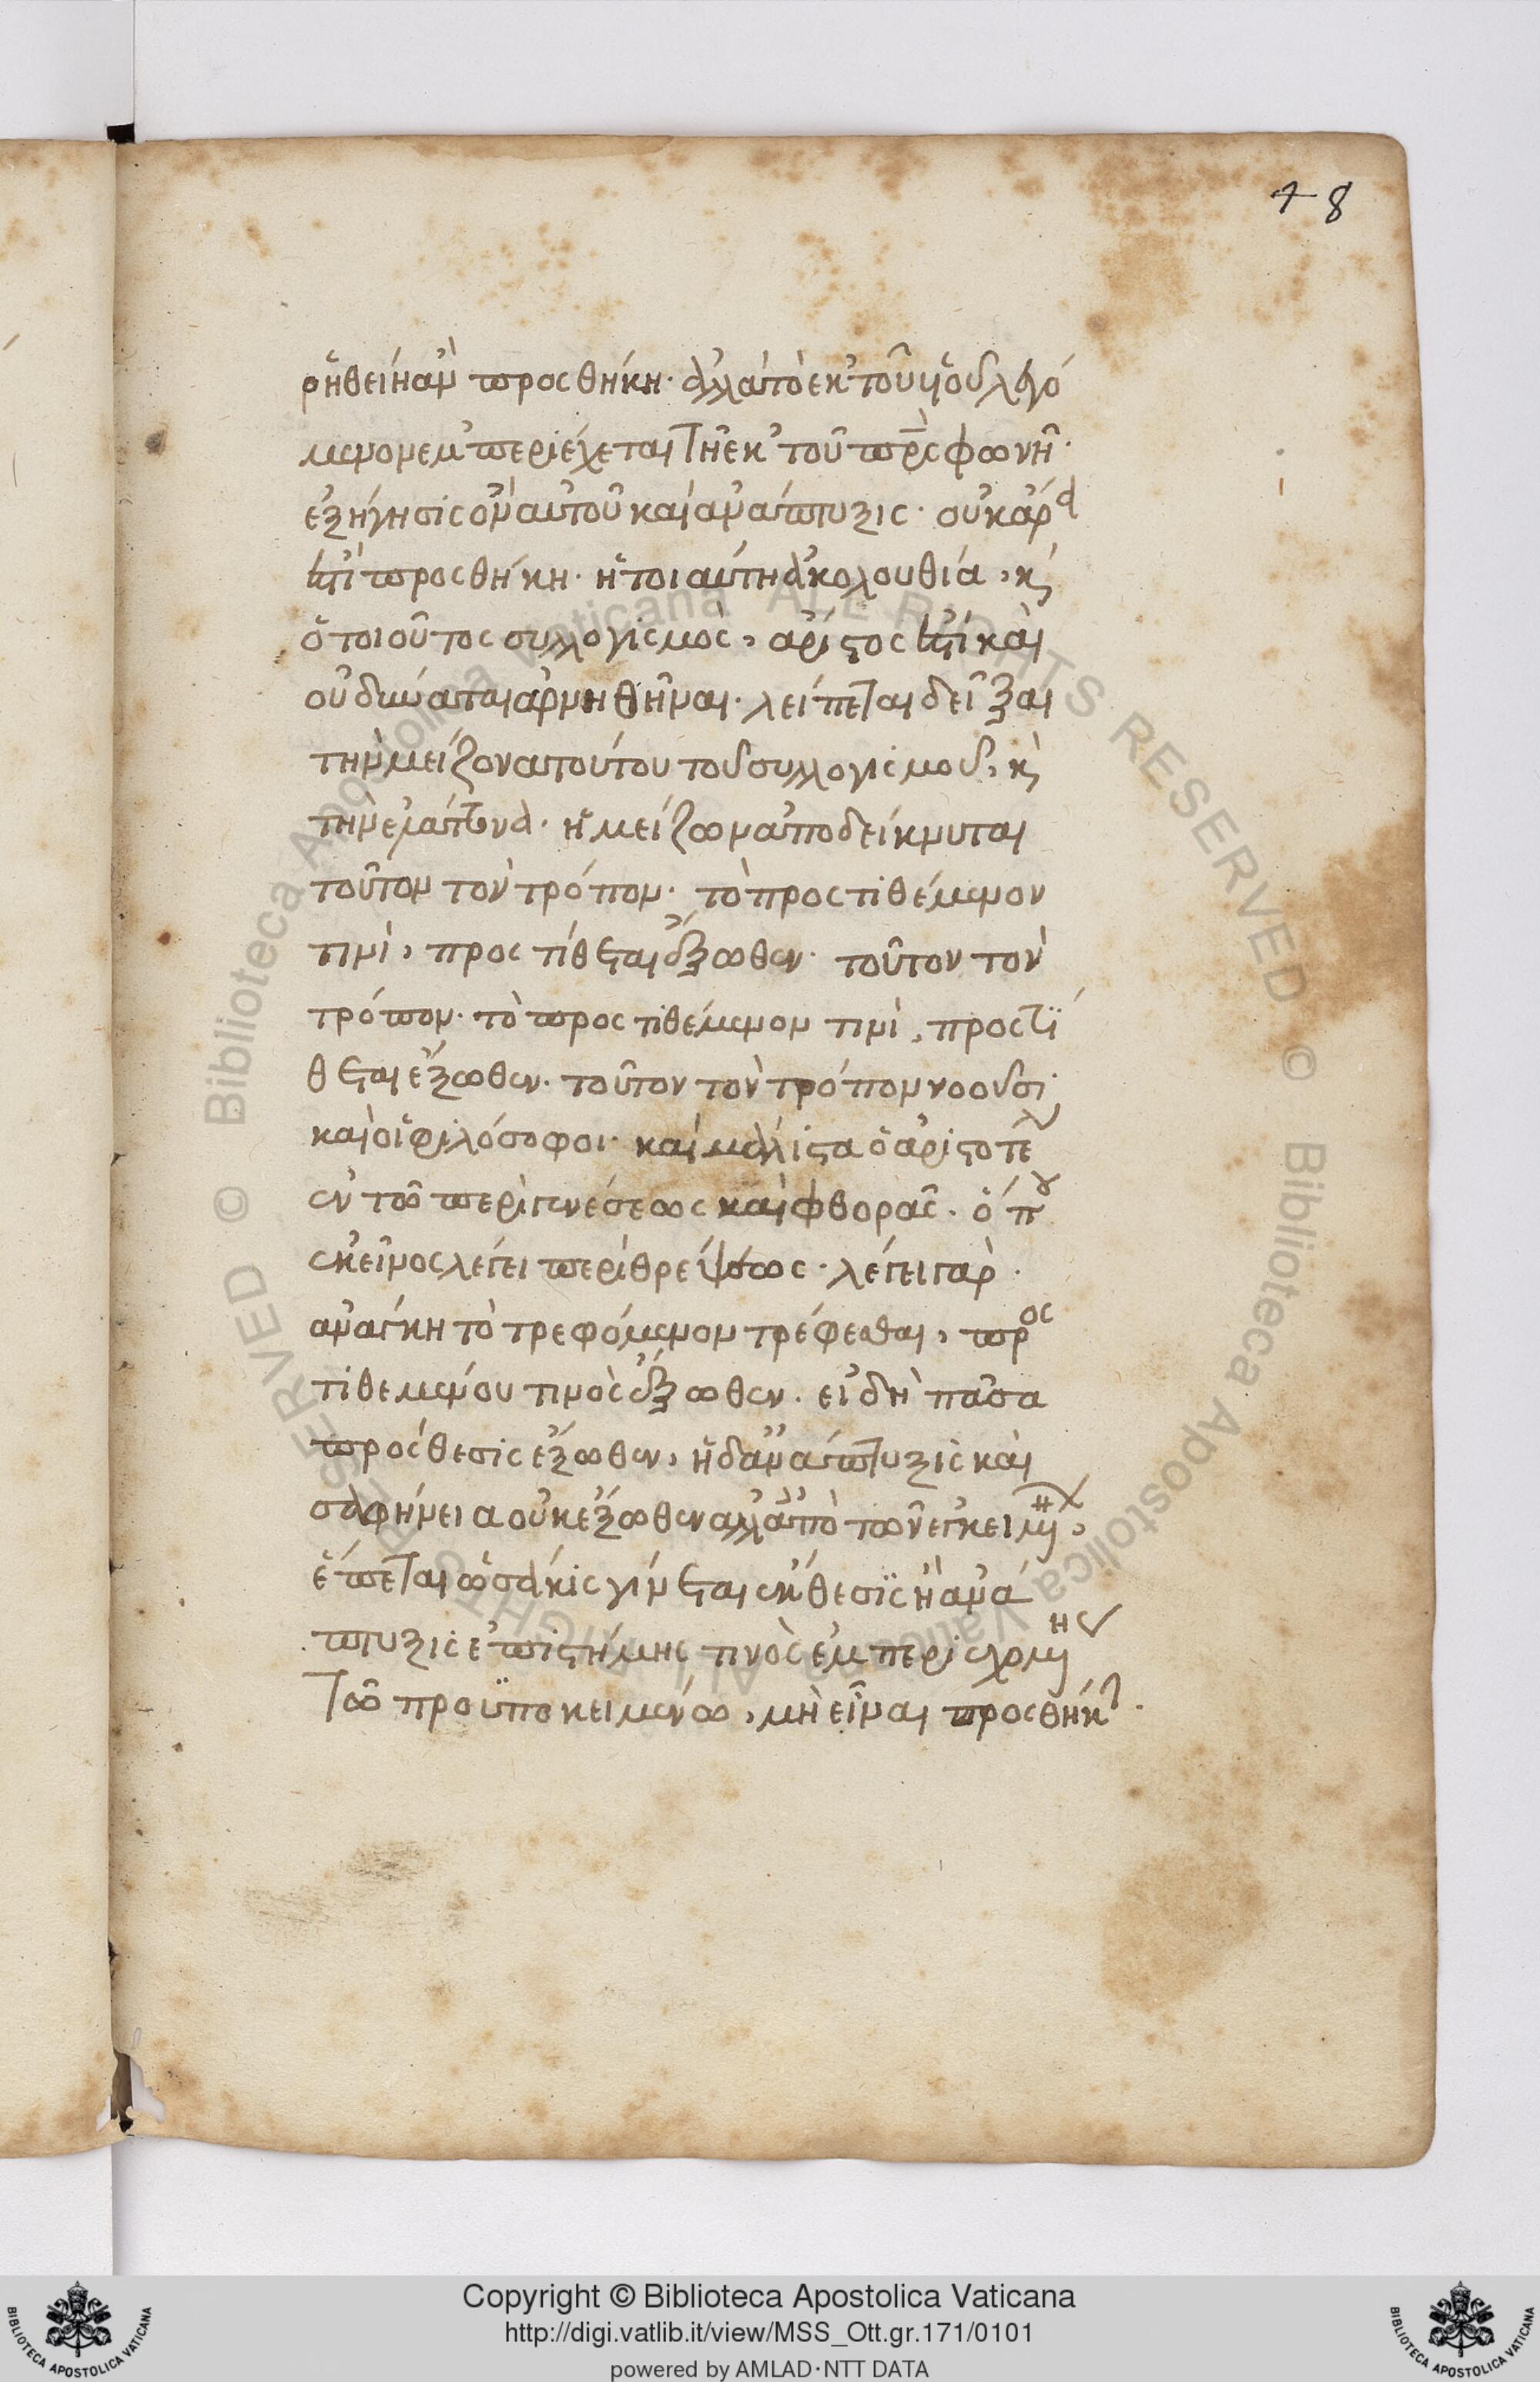 48
ῥηθείη ἂν προσθήκη· ἀλλὰ τὸ ἐκ τοῦ υἱοῦ λεγό
μενον ἐμπεριέχεται τῆ ἐκ τοῦ πρς φωνῆ·
ἐξήγησις ὂν αὐτοῦ καὶ ἀνάπτυξις· οὐκ ἄρα
ἐστὶ προσθήκη· ἡ τοιαύτη ἀκολουθία, κ
ὁ τοιοῦτος συλλογισμὸς, ἄριστος ἐστὶ καὶ
οὐ δύναται ἀρνηθῆναι· λείπεται δεῖξαι
τὴν μείζονα τούτου τοῦ συλλογισμοῦ, κ
τὴν ἐλάττονα· ἡ μείζων ἀποδείκνυται
τοῦτον τὸν τρόπον· τὸ προστιθέμενον
τινὶ, προστίθεται ἔξωθεν· τοῦτον τὸν
τρόπον· τὸ προστιθέμενον τινὶ, προστί
θεται ἔξωθεν· τοῦτον τὸν τρόπον νοοῦσι
καὶ οἱ φιλόσοφοι· καὶ μάλιστα ὁ ἀριστοτέλ
ἐν τῶ περὶ γενέσεως καὶ φθορᾶς· ὅπου
ἐκεῖνος λέγει περὶ θρέψεως· λέγει γὰρ·
ἀνάγκη τὸ τρεφόμενον τρέφεσθαι, προσ
τιθεμένου τινὸς ἔξωθεν· εἰ δὴ πᾶσα
πρόσθεσις ἔξωθεν, ἡ δ' ἀνάπτυξις καὶ
σαφήνεια οὐκ ἔξωθεν ἀλλ' ἀπὸ τῶν ἐγκειμένων,
ἕπεται ὡσάκις γίνεται ἔκθεσις ἢ ἀνά
πτυξις ἐπιστήμης τινὸς ἐμπεριεχομένης
τῶ προϋποκειμένω, μὴ εἶναι προσθήκην·
Copyright © Biblioteca Apostolica Vaticana
http://digi.vatlib.it/view/MSS_Ott.gr.171/0101
powered by AMLAD·NTT DATA
BIBLIOTECA APOSTOLICA VATICANA
BIBLIOTECA APOSTOLICA VATICANA
© Biblioteca Apostolica Vaticana ALL RIGHTS RESERVED
© Biblioteca Apostolica Vaticana ALL RIGHTS RESERVED